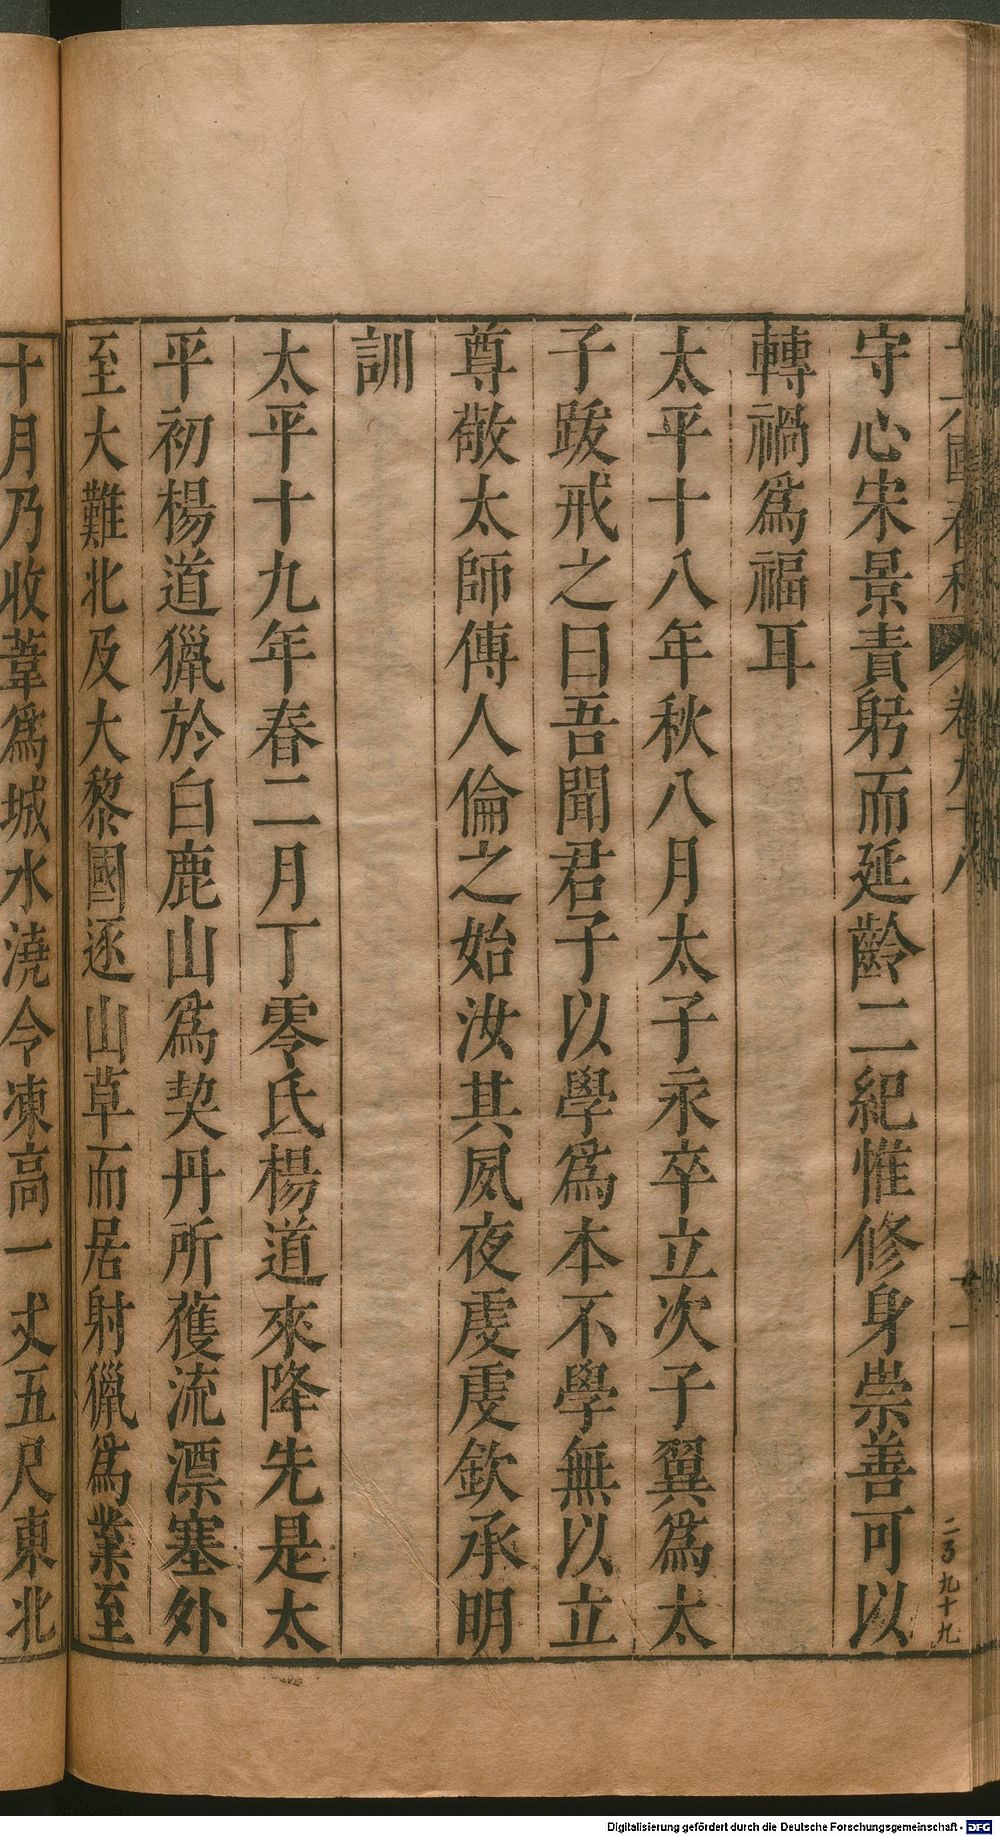 國春秋 卷九十八
守心宋景責躬而延齡二紀惟修身崇善可以
轉禍爲福耳
太平十八年秋八月太子永卒立次子翼爲太
子跋戒之曰吾聞君子以學爲本不學無以立
尊敬太師傅人倫之始汝其夙夜虔虔欽承明
訓
太平十九年春二月丁零氏楊道來降先是太
平初楊道獵於白鹿山爲契丹所獲流漂塞外
至大難北及大黎國逐山草而居射獵爲業至
十月乃收葦爲城水澆令凍高一丈五尺東北
二ノ九十九
Digitalisierung gefördert durch die Deutsche Forschungsgemeinschaft - DFG